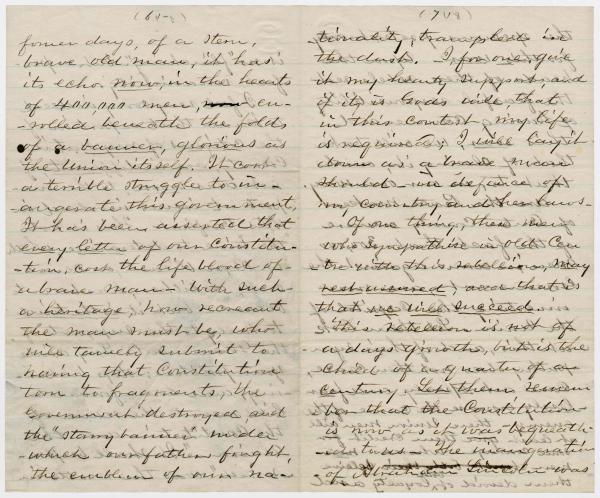 (6
former days, of a stern,
brave old man, it has
its echo now, in the hearts
of 400,000 men, now en-
-rolled beneath the folds
of a banner, glorious as
the Union itself. It cost
a terrible struggle to in-
-augerate this government
It has been asserted that
every letter of our Constitu-
-tion, cost the life blood of
a brave man - With such
a heritage, how recreant
the man must be, who
will tamely submit to
having that Constitution
torn to fragments, the
Government destroyed and
the "starry banner" under
which our fathers fought,
the emblem of our na-
(7
tionality, trampled in
the dust. I, for one, give
it my hearty support, and
if it is Gods will, that,
in this contest, my life
is required, I will lay it
down as a brave man
should - in defance of
my country and her laws -
Of one thing, the men
who sympathise in Old Cen-
-tre with this rebellion, may
rest assured, and that is
that we will succeed.
This rebellion is not of
a days growth, but is the
child of a quarter of a
century. Let them remem
ber that the Constitution
is now, as it was bequeath-
-ed to us - The inaugeration
of Abraham Lincoln was